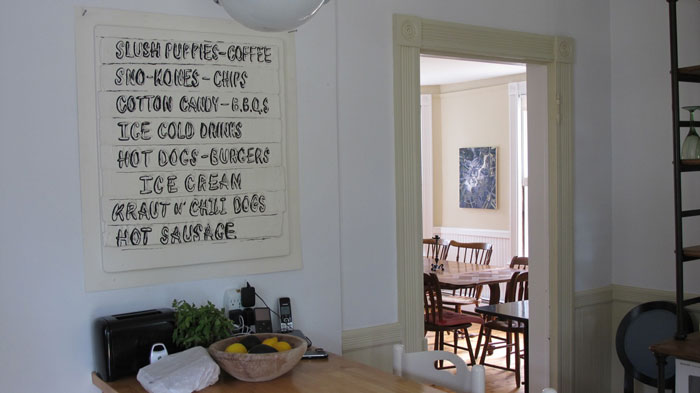 SLUSH PUPPIES-COFFEE
SNO-KONES-CHIPS
COTTON CANDY-B.B.Q.S
ICE COLD DRINKS
HOT DOGS-BURGERS
ICE CREAM
KRAUT N' CHILI DOGS
HOT SAUSAGE